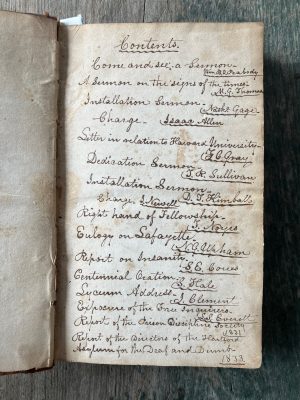 Contents.
Come and see, a Sermon.
Peabody
A Sermon on the signs of the times.
M. G. Thomas
Installation Sermon.
Nath Gage
Charge — Isaac Allen
Letter in relation to Harvard University
F. C. Gray
Dedication Sermon.
T. R. Sullivan
Installation Sermon.
D. T. Kimball
Charge, Newell
Right hand of Fellowship.
Noyes
Eulogy on Lafayette
N. G. Upham
Report on Insanity
S. E. Coues
Centennial Oration
S. Hale
Lyceum Address,
J. Clement
Exposure of the Free Inquirers
Everett
Report of the Prison Discipline Society
1831
Report of the Directors of the Hartford
Asylum for the Deaf and Dumb.
1833.